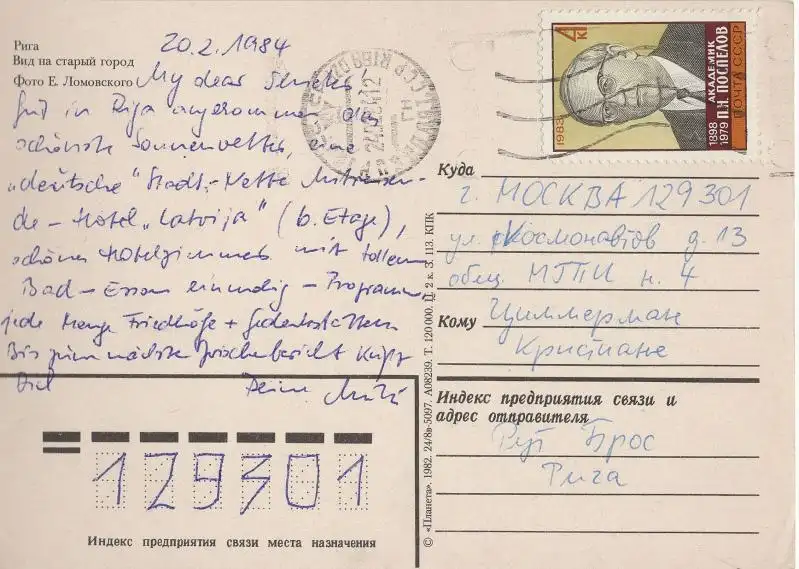 Рига
Вид на старый город
Фото Е. Ломовского
20.2.1984
My dear
Gut in Riga angekommen, das
schönste Sonnenwetter, eine
„deutsche“ Stadt - Nette Mitreisen-
de - Hotel „Latvija“ (6. Etage),
schönes Hotelzimmer mit tollem
Bad - Essen einmalig - Programm,
jede Menge Friedhöfe + Gedenkstätten
Bis zum nächsten Zwischenbericht küßt
Dich Deine
4к
1983
АКАДЕМИК
П.Н. ПОСПЕЛОВ
1898
1979
ПОЧТА СССР
Куда
г. МОСКВА 129301
ул. Космонавтов д. 13
общ. МГПИ н. 4
Кому
Циммерман
Кристиане
Индекс предприятия связи и
адрес отправителя
Рут Брос
Рига
129301
Индекс предприятия связи места назначения
© «Планета». 1982. 24/8в-5097. А08239. Т. 120 000. Ц. 2 к. З. 113. КПК